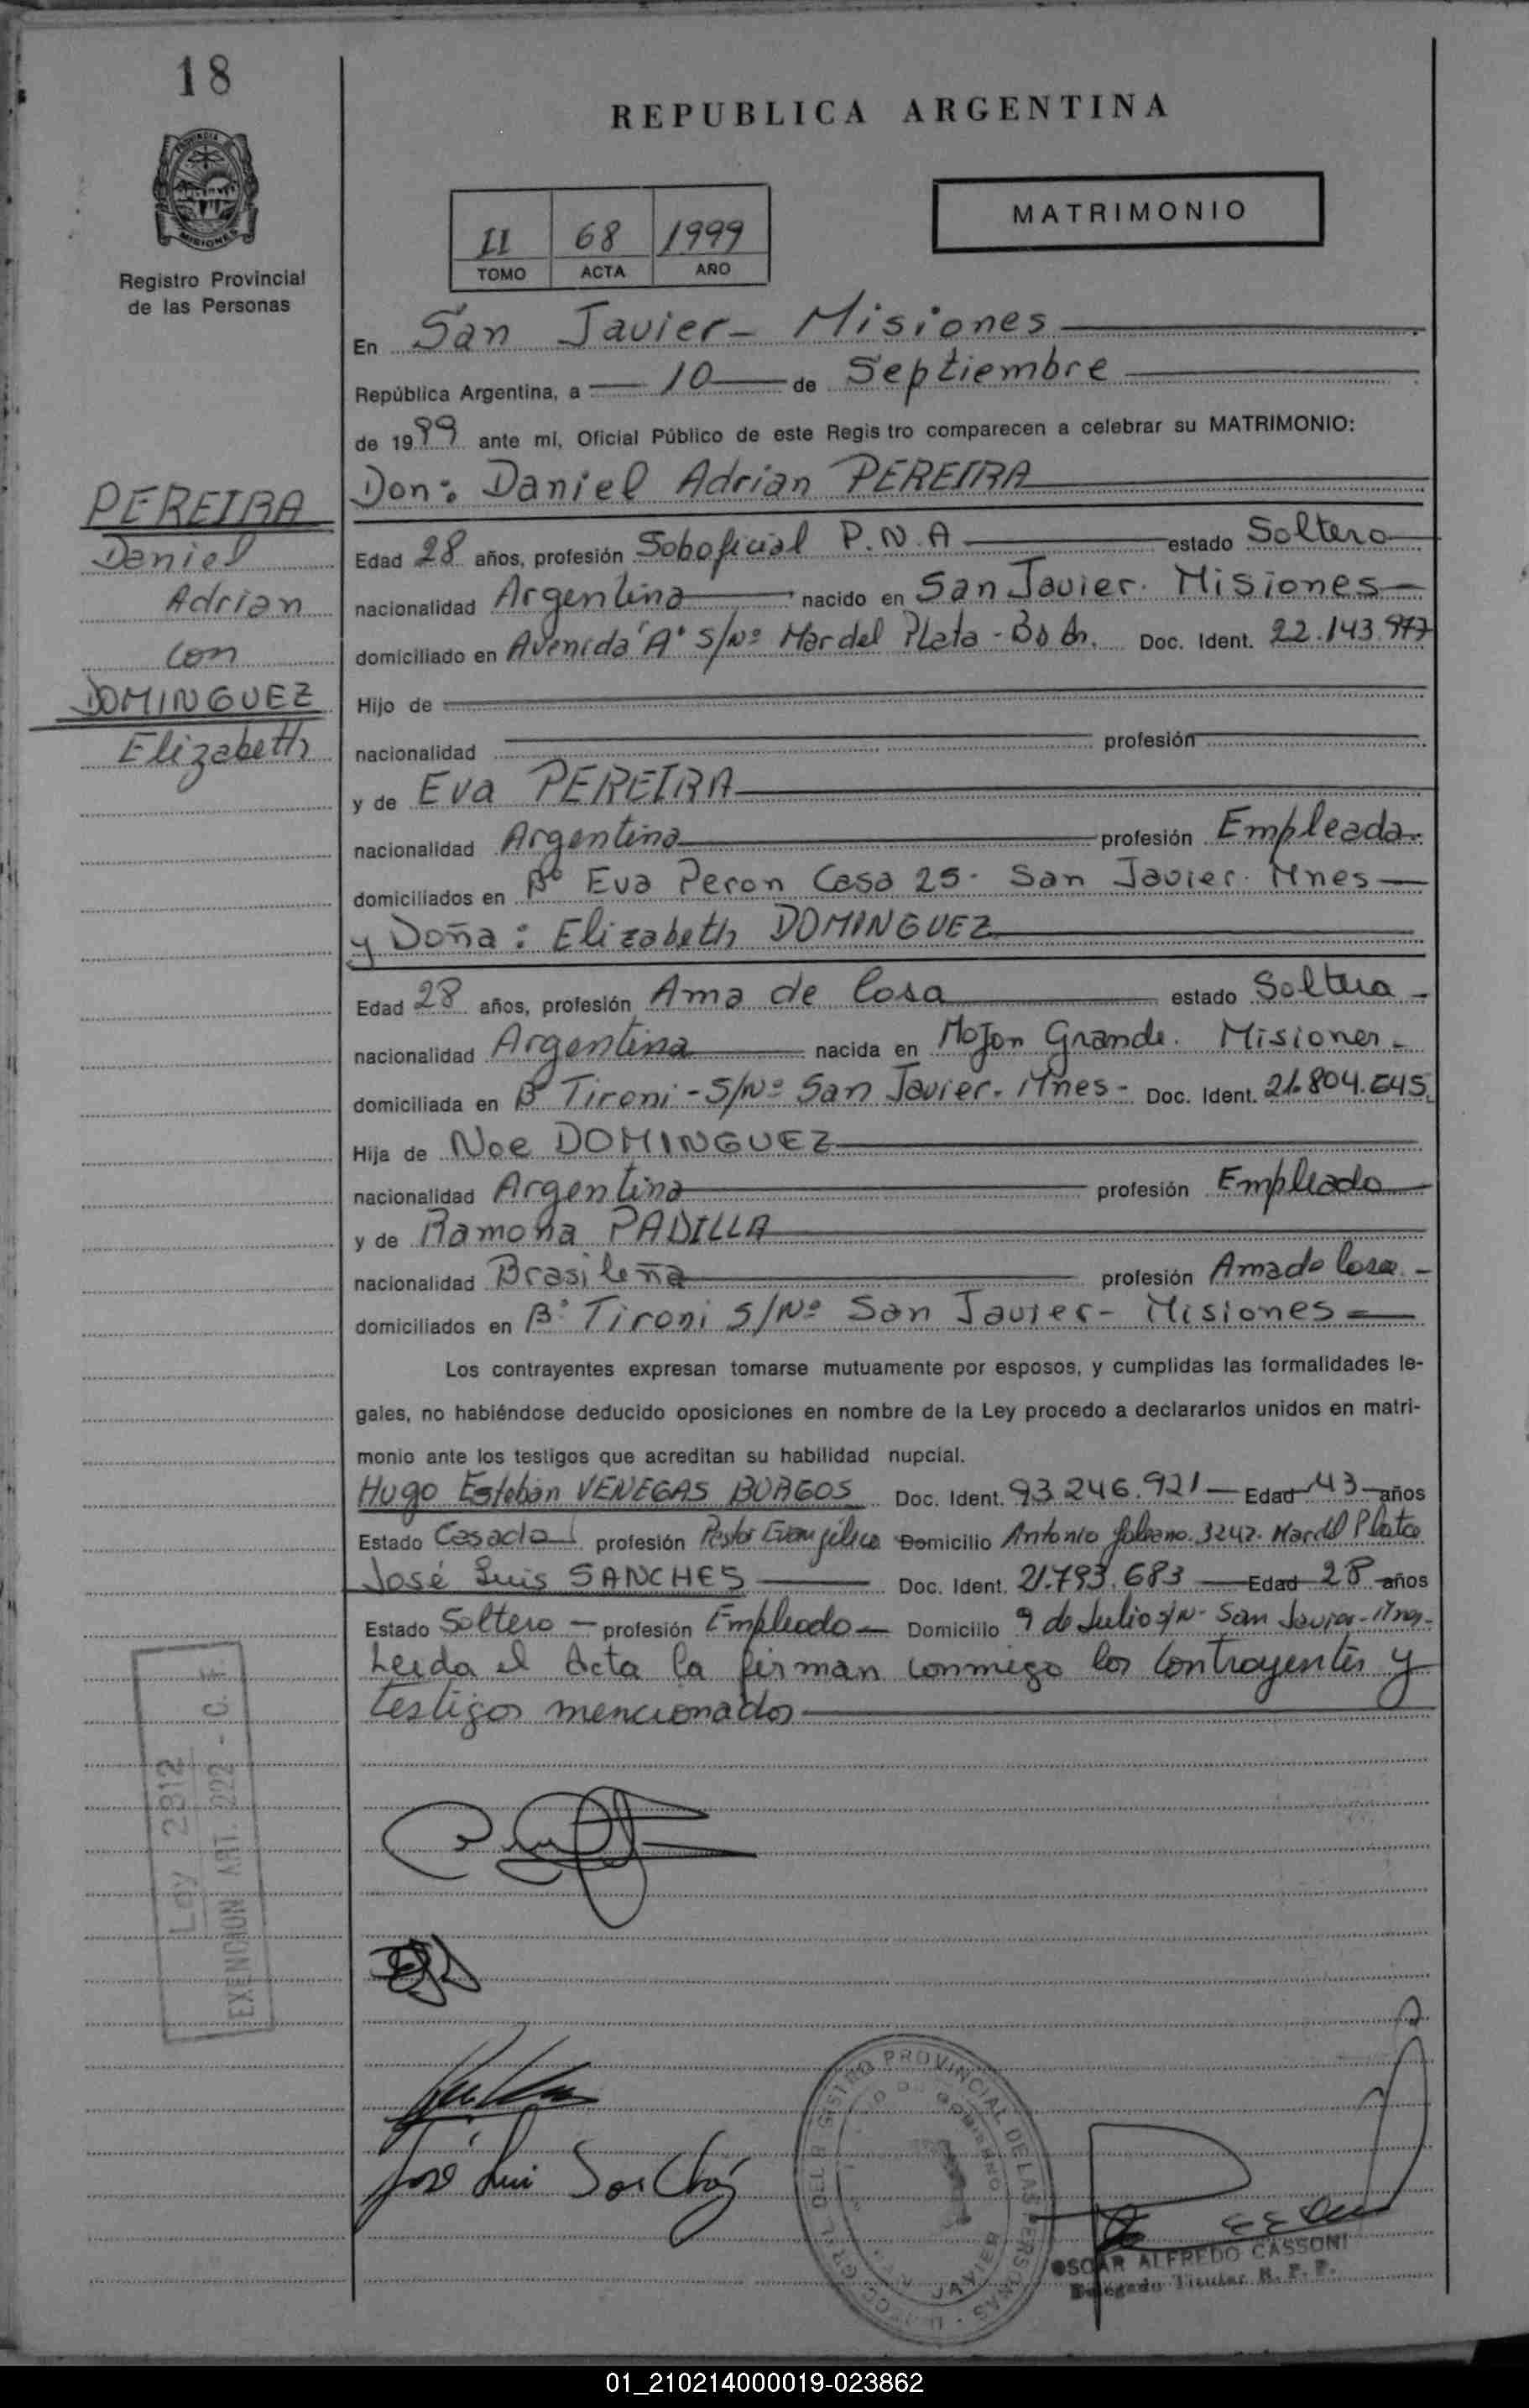 18
REPUBLICA ARGENTINA
PROVINCIA
MISIONES
Registro Provincial
de las Personas
II 68 1999
TOMO ACTA AÑO
MATRIMONIO
En San Javier - Misiones
República Argentina, a 10 de Septiembre
de 1999 ante mí, Oficial Público de este Regis tro comparecen a celebrar su MATRIMONIO:
Don: Daniel Adrian PEREIRA
PEREIRA
Daniel
Adrian
con
DOMINGUEZ
Elizabeth
Edad 28 años, profesión Suboficial P.N.A estado Soltero
nacionalidad Argentina nacido en San Javier. Misiones
domiciliado en Avenida "A" S/Nº Mar del Plata - Bs As. Doc. Ident. 22.143.977
Hijo de
nacionalidad profesión
y de Eva PEREIRA
nacionalidad Argentina profesión Empleada
domiciliados en Bº Eva Peron Casa 25 - San Javier. Mnes
y Doña: Elizabeth DOMINGUEZ
Edad 28 años, profesión Ama de Casa estado Soltera
nacionalidad Argentina nacida en Mojon Grande. Misiones
domiciliada en Bº Tironi - S/Nº San Javier. Mnes - Doc. Ident. 21.804.645
Hija de Noe DOMINGUEZ
nacionalidad Argentina profesión Empleado
y de Ramona PADILLA
nacionalidad Brasileña profesión Ama de Casa
domiciliados en Bº Tironi S/Nº San Javier - Misiones
Los contrayentes expresan tomarse mutuamente por esposos, y cumplidas las formalidades le-
gales, no habiéndose deducido oposiciones en nombre de la Ley procedo a declararlos unidos en matri-
monio ante los testigos que acreditan su habilidad nupcial.
Hugo Esteban VENEGAS BURGOS Doc. Ident. 93.246.921 Edad 43 años
Estado Casado profesión Pastor Evangélico Domicilio Antonio 3247. Mar del Plata
José Luis SANCHES Doc. Ident. 21.793.683 Edad 28 años
Estado Soltero profesión Empleado Domicilio 9 de Julio s/N - San Javier - Mnes
Leida el Acta la firman conmigo los Contrayentes y
testigos mencionados
Ley 2812
EXENCION ART. 222 - C. F.
José Luis Sanches
REGISTRO PROVINCIAL DE LAS PERSONAS
JAVIER
OSCAR ALFREDO CASSONI
Delegado Titular R. P. P.
01_210214000019-023862